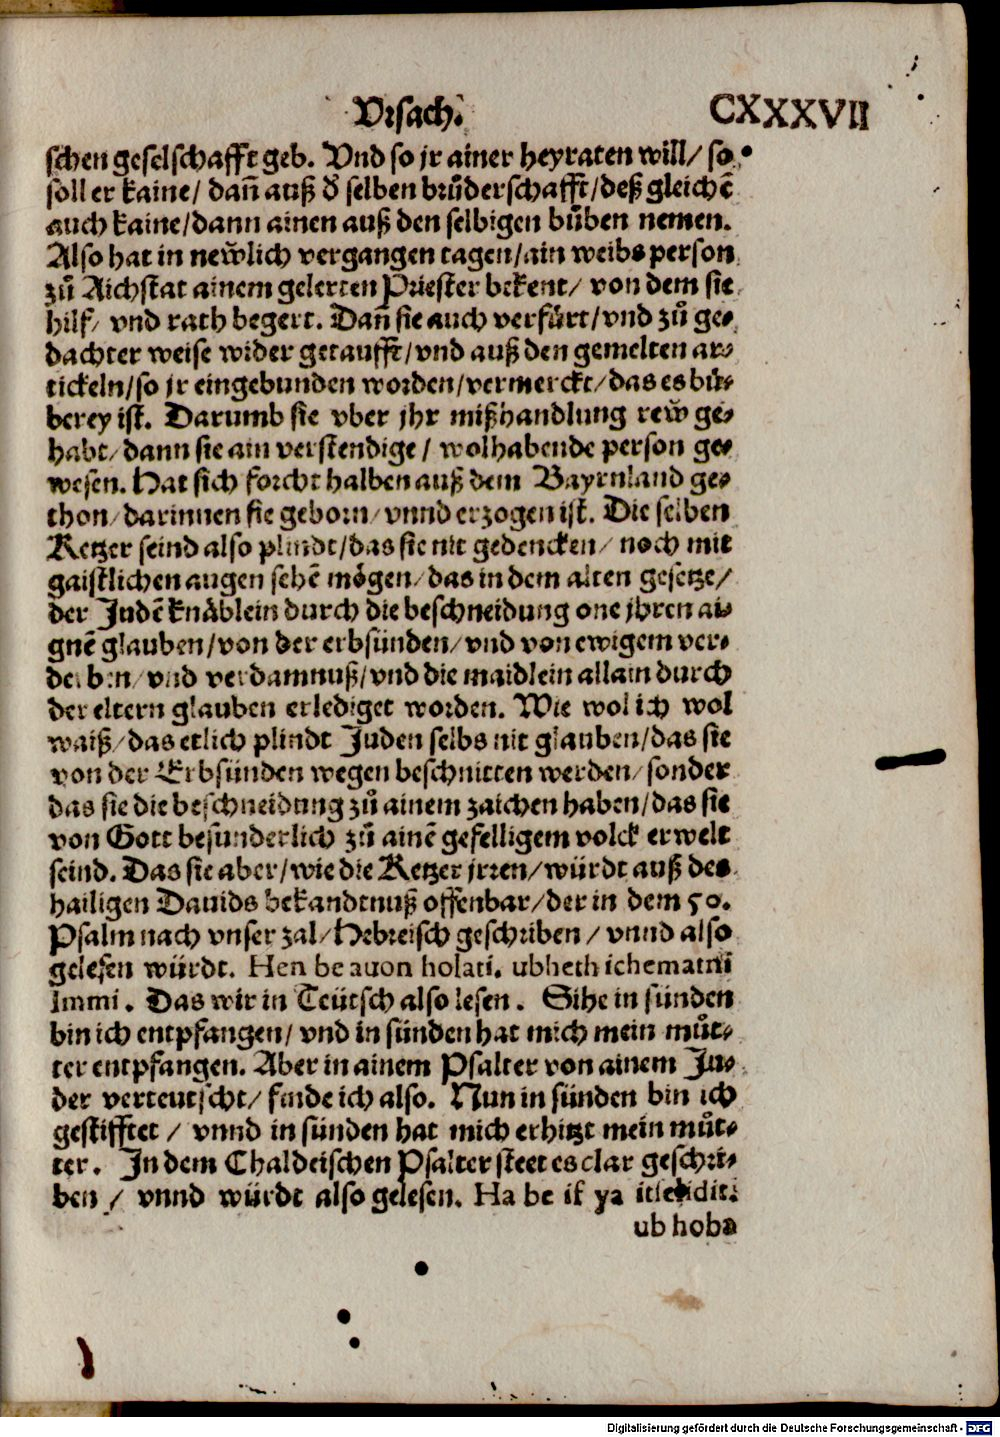 Vrsach.
CXXXVII
schen geselschafft geb. Vnd so jr ainer heyraten will/ so
soll er kaine/ dañ auß d̾ selben brůderschafft/deß gleichẽ
auch kaine/dann ainen auß den selbigen bůben nemen.
Also hat in newlich vergangen tagen/ain weibs person
zů Aichstat ainem gelerten Priester bekent/ von dem sie
hilf/ vnd rath begert. Dañ sie auch verfürt/vnd zů ge-
dachter weise wider getaufft/vnd auß den gemelten ar-
tickeln/so jr eingebunden worden/vermerckt/das es bů-
berey ist. Darumb sie vber jhr mißhandlung rew ge-
habt/dann sie ain verstendige/ wolhabende person ge-
wesen. Hat sich forcht halben auß dem Bayrnland ge-
thon/darinnen sie geborn/vnnd erzogen ist. Die selben
Ketzer seind also plindt/das sie nit gedencken/ noch mit
gaistlichen augen sehẽ mögen/das in dem alten gesetze/
der Judẽ knäblein durch die beschneidung one jhren ai-
gnẽ glauben/von der erbsünden/vnd von ewigem ver-
derben/vnd verdamnuß/vnd die maidlein allain durch
der eltern glauben erlediget worden. Wie wol ich wol
waiß/das etlich plindt Juden selbs nit glauben/das sie
von der Erbsünden wegen beschnitten werden/sonder
das sie die beschneidung zů ainem zaichen haben/das sie
von Gott besunderlich zů ainẽ gefelligem volck erwelt
seind. Das sie aber/wie die Ketzer jrren/würdt auß des
hailigen Dauids bekandtnuß offenbar/der in dem 50.
Psalm nach vnser zal/Hebreisch geschriben/ vnnd also
gelesen würdt. Hen be auon holati. ubheth ichematni
Immi. Das wir in Teütsch also lesen. Sihe in sünden
bin ich entpfangen/ vnd in sünden hat mich mein můt-
ter entpfangen. Aber in ainem Psalter von ainem Ju-
der verteutscht/ finde ich also. Nun in sünden bin ich
gestifftet/ vnnd in sünden hat mich erhitzt mein můt-
ter. In dem Chaldeischen Psalter steet es clar geschri-
ben/ vnnd würdt also gelesen. Ha be if ya
ub hoba
Digitalisierung gefördert durch die Deutsche Forschungsgemeinschaft - DFG